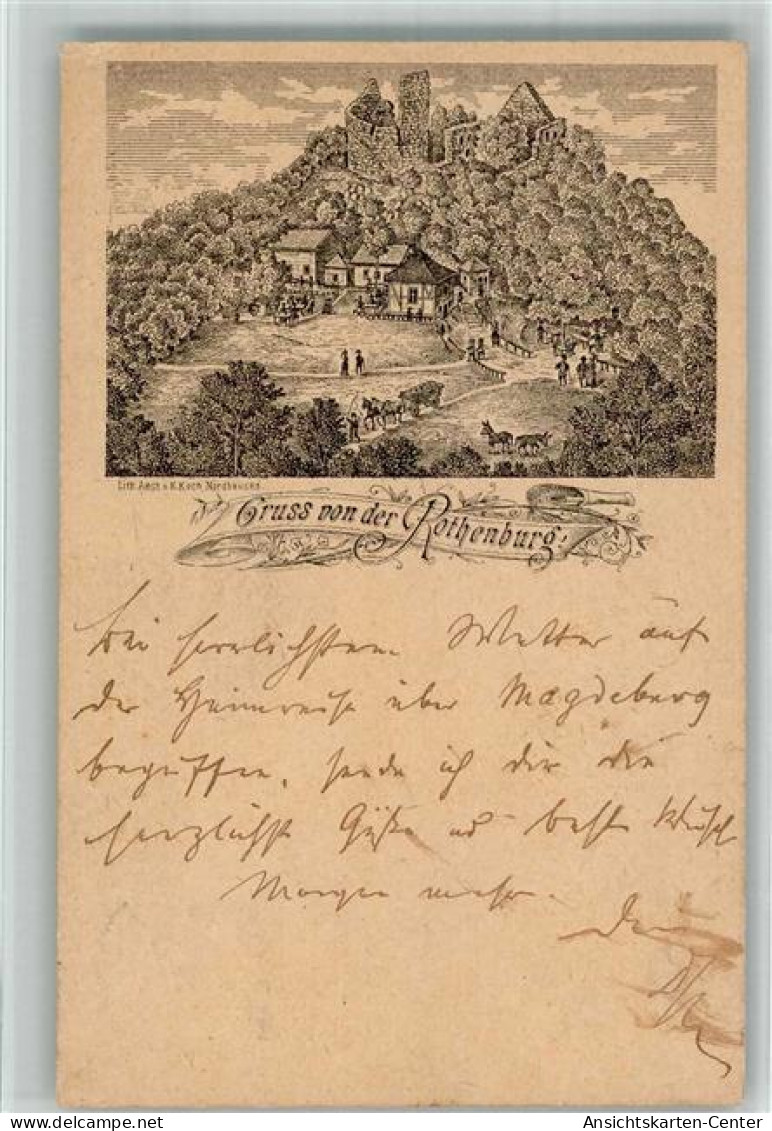 Lith. Anst. v. K. Koch, Nordhausen
Gruss von der Rothenburg!
bei herrlichstem Wetter auf
der Heimreise über Magdeburg
begriffen, sende ich dir die
herzlichst Grüße und best Wünsch
Morgen mehr.
Dein
delcampe.net
Ansichtskarten-Center